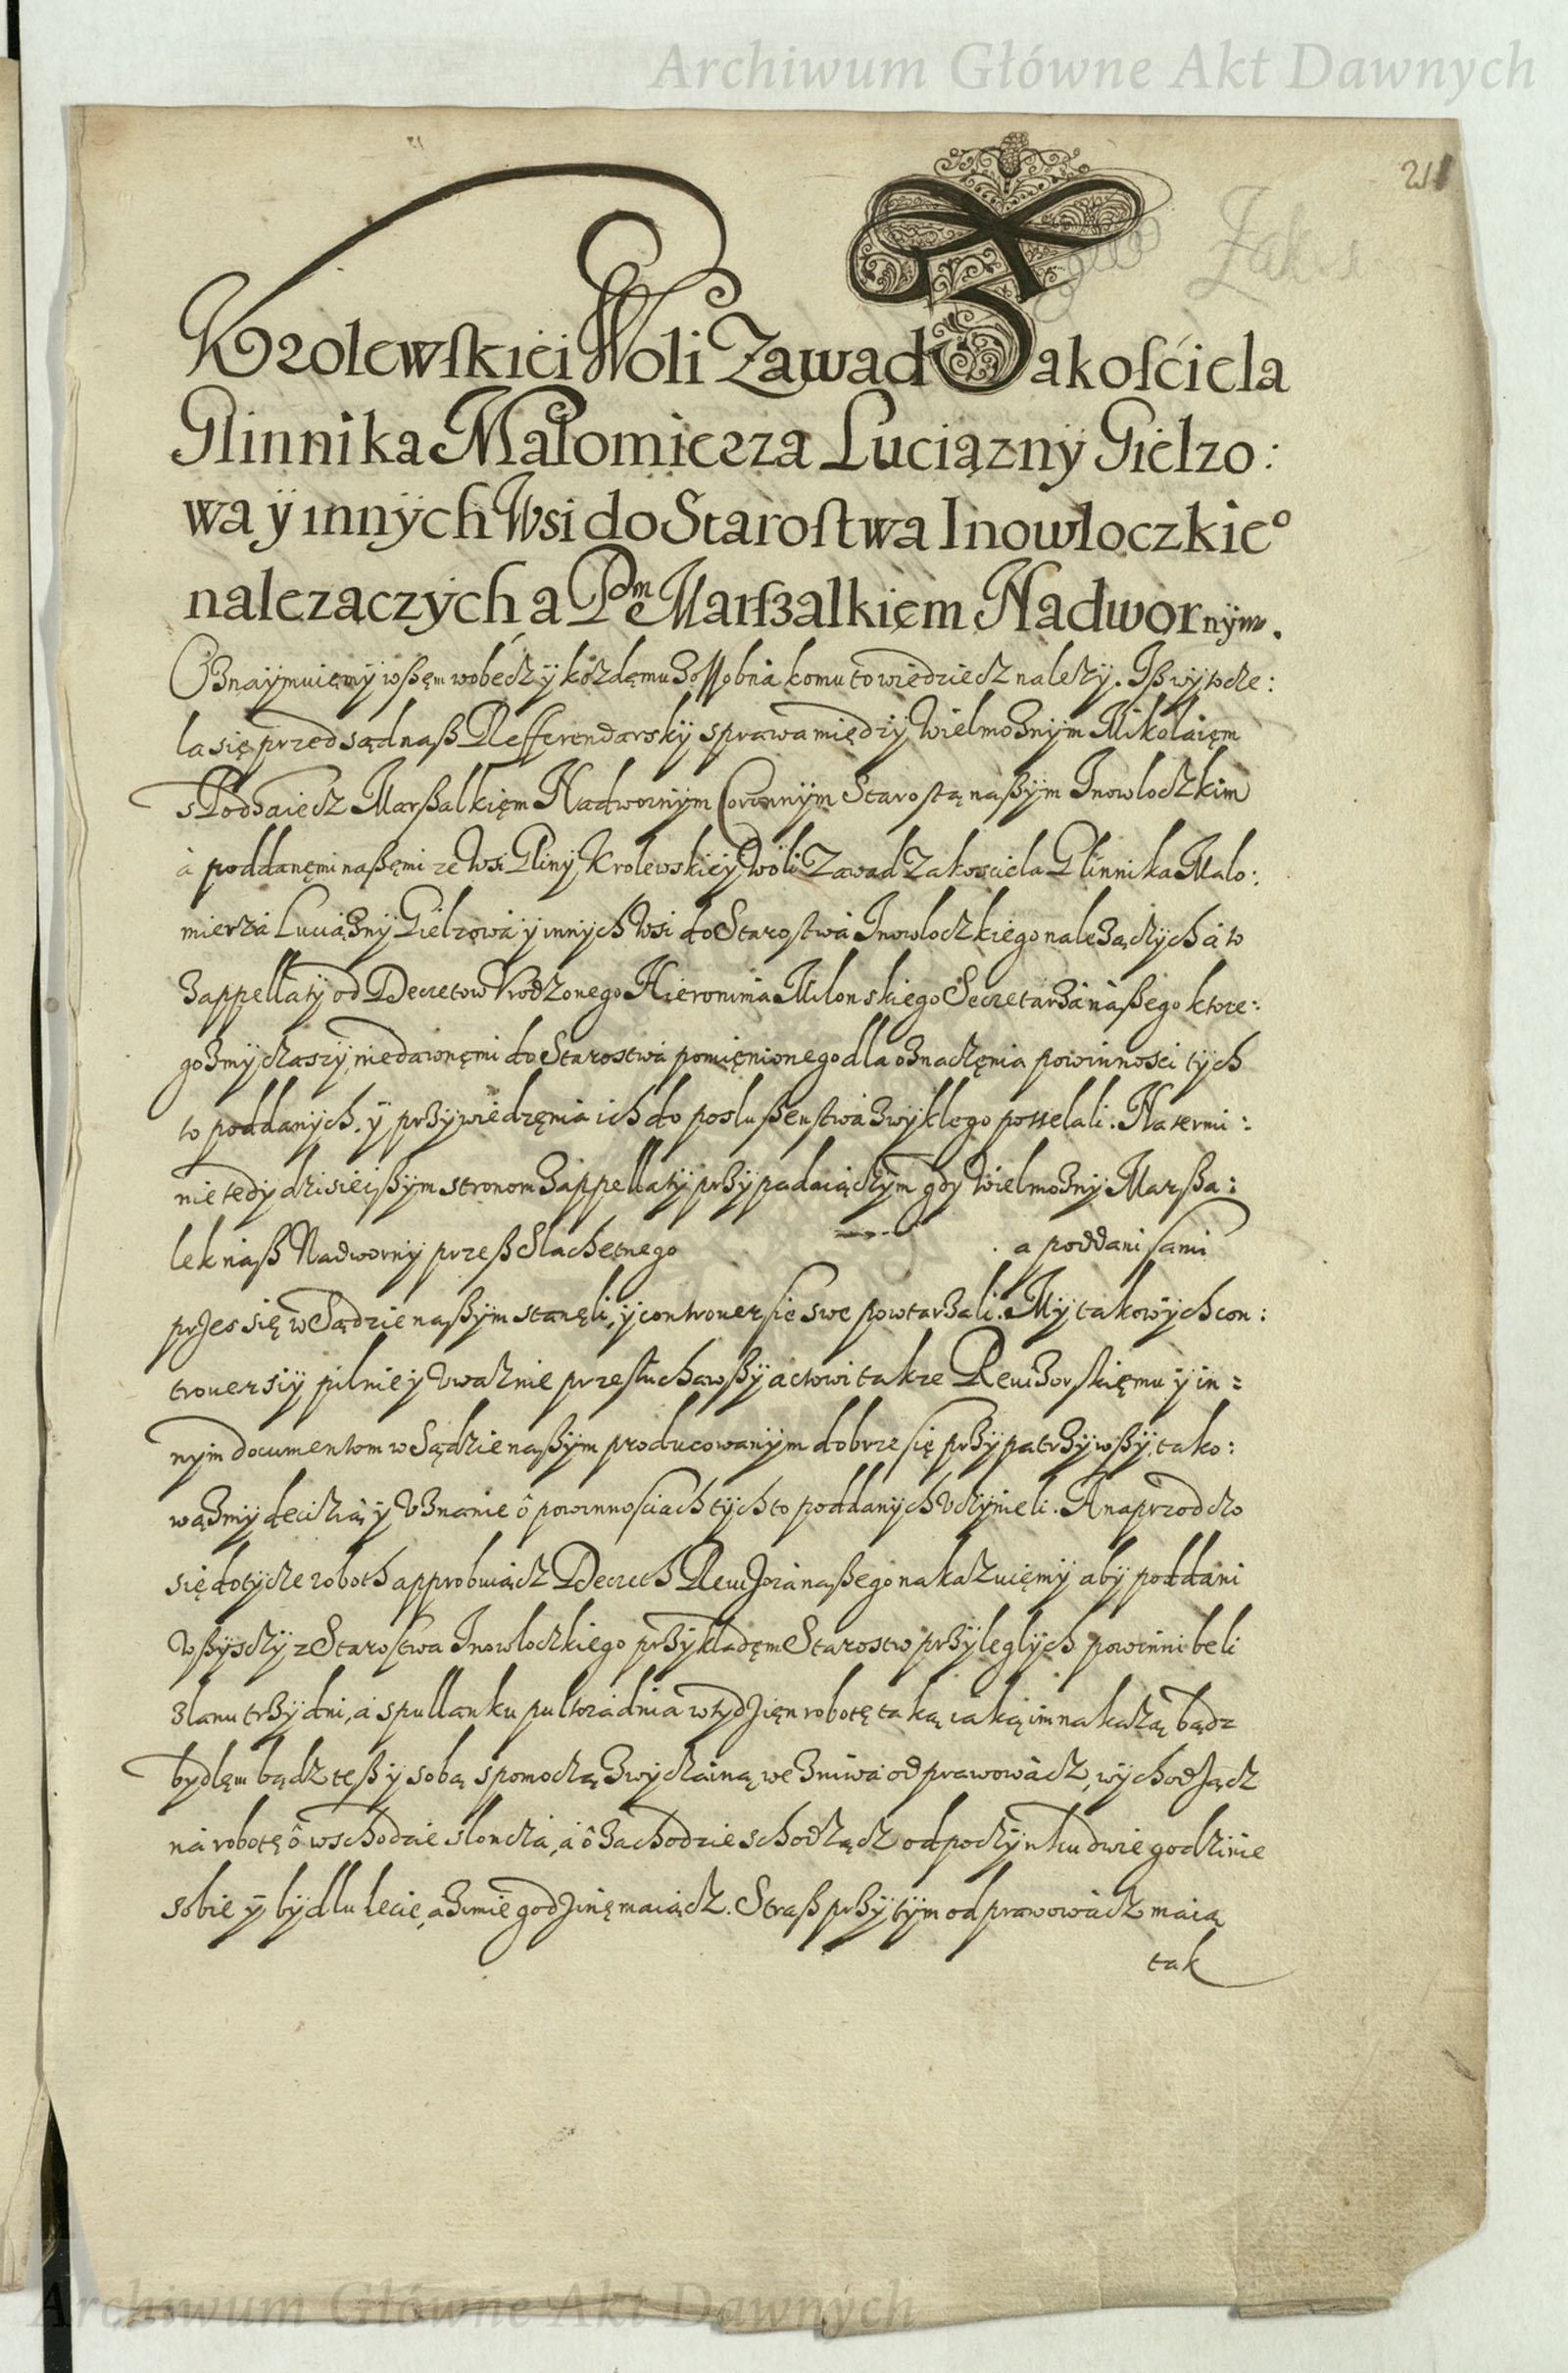 Archiwum Główne Akt Dawnych
211
Krolewskiei Woli Zawad Zakosciela
Glinnika Małomierza Luciązny Gielzo:
wa ÿ innÿch Wsi do Starostwa Inowłoczkie°
nalezaczÿch a Pdm Marszalkięm Nadwornÿm.
Oznaÿmuięmÿ wßęm wobecz ÿ kozdęmu zossobna komu to wiedziecz nalezÿ. Iß wÿtocze:
la się przed sąd naß Refferendarskÿ sprawa międzÿ Wielmoznÿm Mikolaięm
s Podhaiecz Marßalkięm Nadwornÿm Coronnÿm Starostą naßÿm Inowloczkim
à poddanęmi naßęmi ze Wsi Glinÿ Krolewskieÿ Woli Zawad Zakosciela Glinnika Malo:
mierza Luciąznÿ Gielzowa ÿ innÿch Wsi do Starostwa Inowloczkiego nalezączÿch à to
z appellatÿ od Decretow Vrodzonego Hieronima Milonskiego Secretarza naßego ktore:
gozmÿ czaszÿ niedawnęmi do Starostwa pomięnionego dla oznaczęnia powinnosci tÿch
to poddanÿch. ÿ przÿwiedzęnia ich do poslußenstwa zwÿklego posselali. Na termi:
nie tedÿ dzisieißÿm stronom z appellatÿ przÿpadaiączÿm gdÿ Wielmoznÿ Marßa:
lek naß Nadwornÿ przeß Slachetnego . a poddani sami
przes się w Sądzie naßÿm stanęli, ÿ controuersie swe powtarzali. Mÿ takowÿch con:
trouersiÿ pilnie ÿ Vwaznie przesłuchawßÿ actowi takze Reuizorskięmu ÿ in:
nÿm documentom w Sądzie naßÿm producowanÿm dobrze się przÿpatrzÿwßÿ, tako:
wązmÿ decizią ÿ Vznanie ô powinnosciach tÿch to poddanÿch Vczÿnieli. A naprzod czo
się dotÿcze roboth approbuiącz Decreth Reuizora naßego nakazuięmÿ abÿ poddani
Wßÿsczÿ z Starostwa Inowloczkiego przÿkladęm Starostw przÿleglÿch powinni beli
z lanu trzÿ dni, a s pullanku pultora dnia w tÿdzięn robotę taką iaką im nakazą bądz
bÿdlęm bądz teß ÿ sobą s pomoczą zwÿczainą we zniwa odprawowacz, wÿchodzącz
na robotę ô wschodzie sloncza, a ô zachodzie schodzącz odpoczÿnku dwie godzinie
sobie ÿ bÿdlu lecie, a zimie godzinę maiącz. Straß przÿ tÿm odprawowacz maią
tak
Archiwum Główne Akt Dawnych